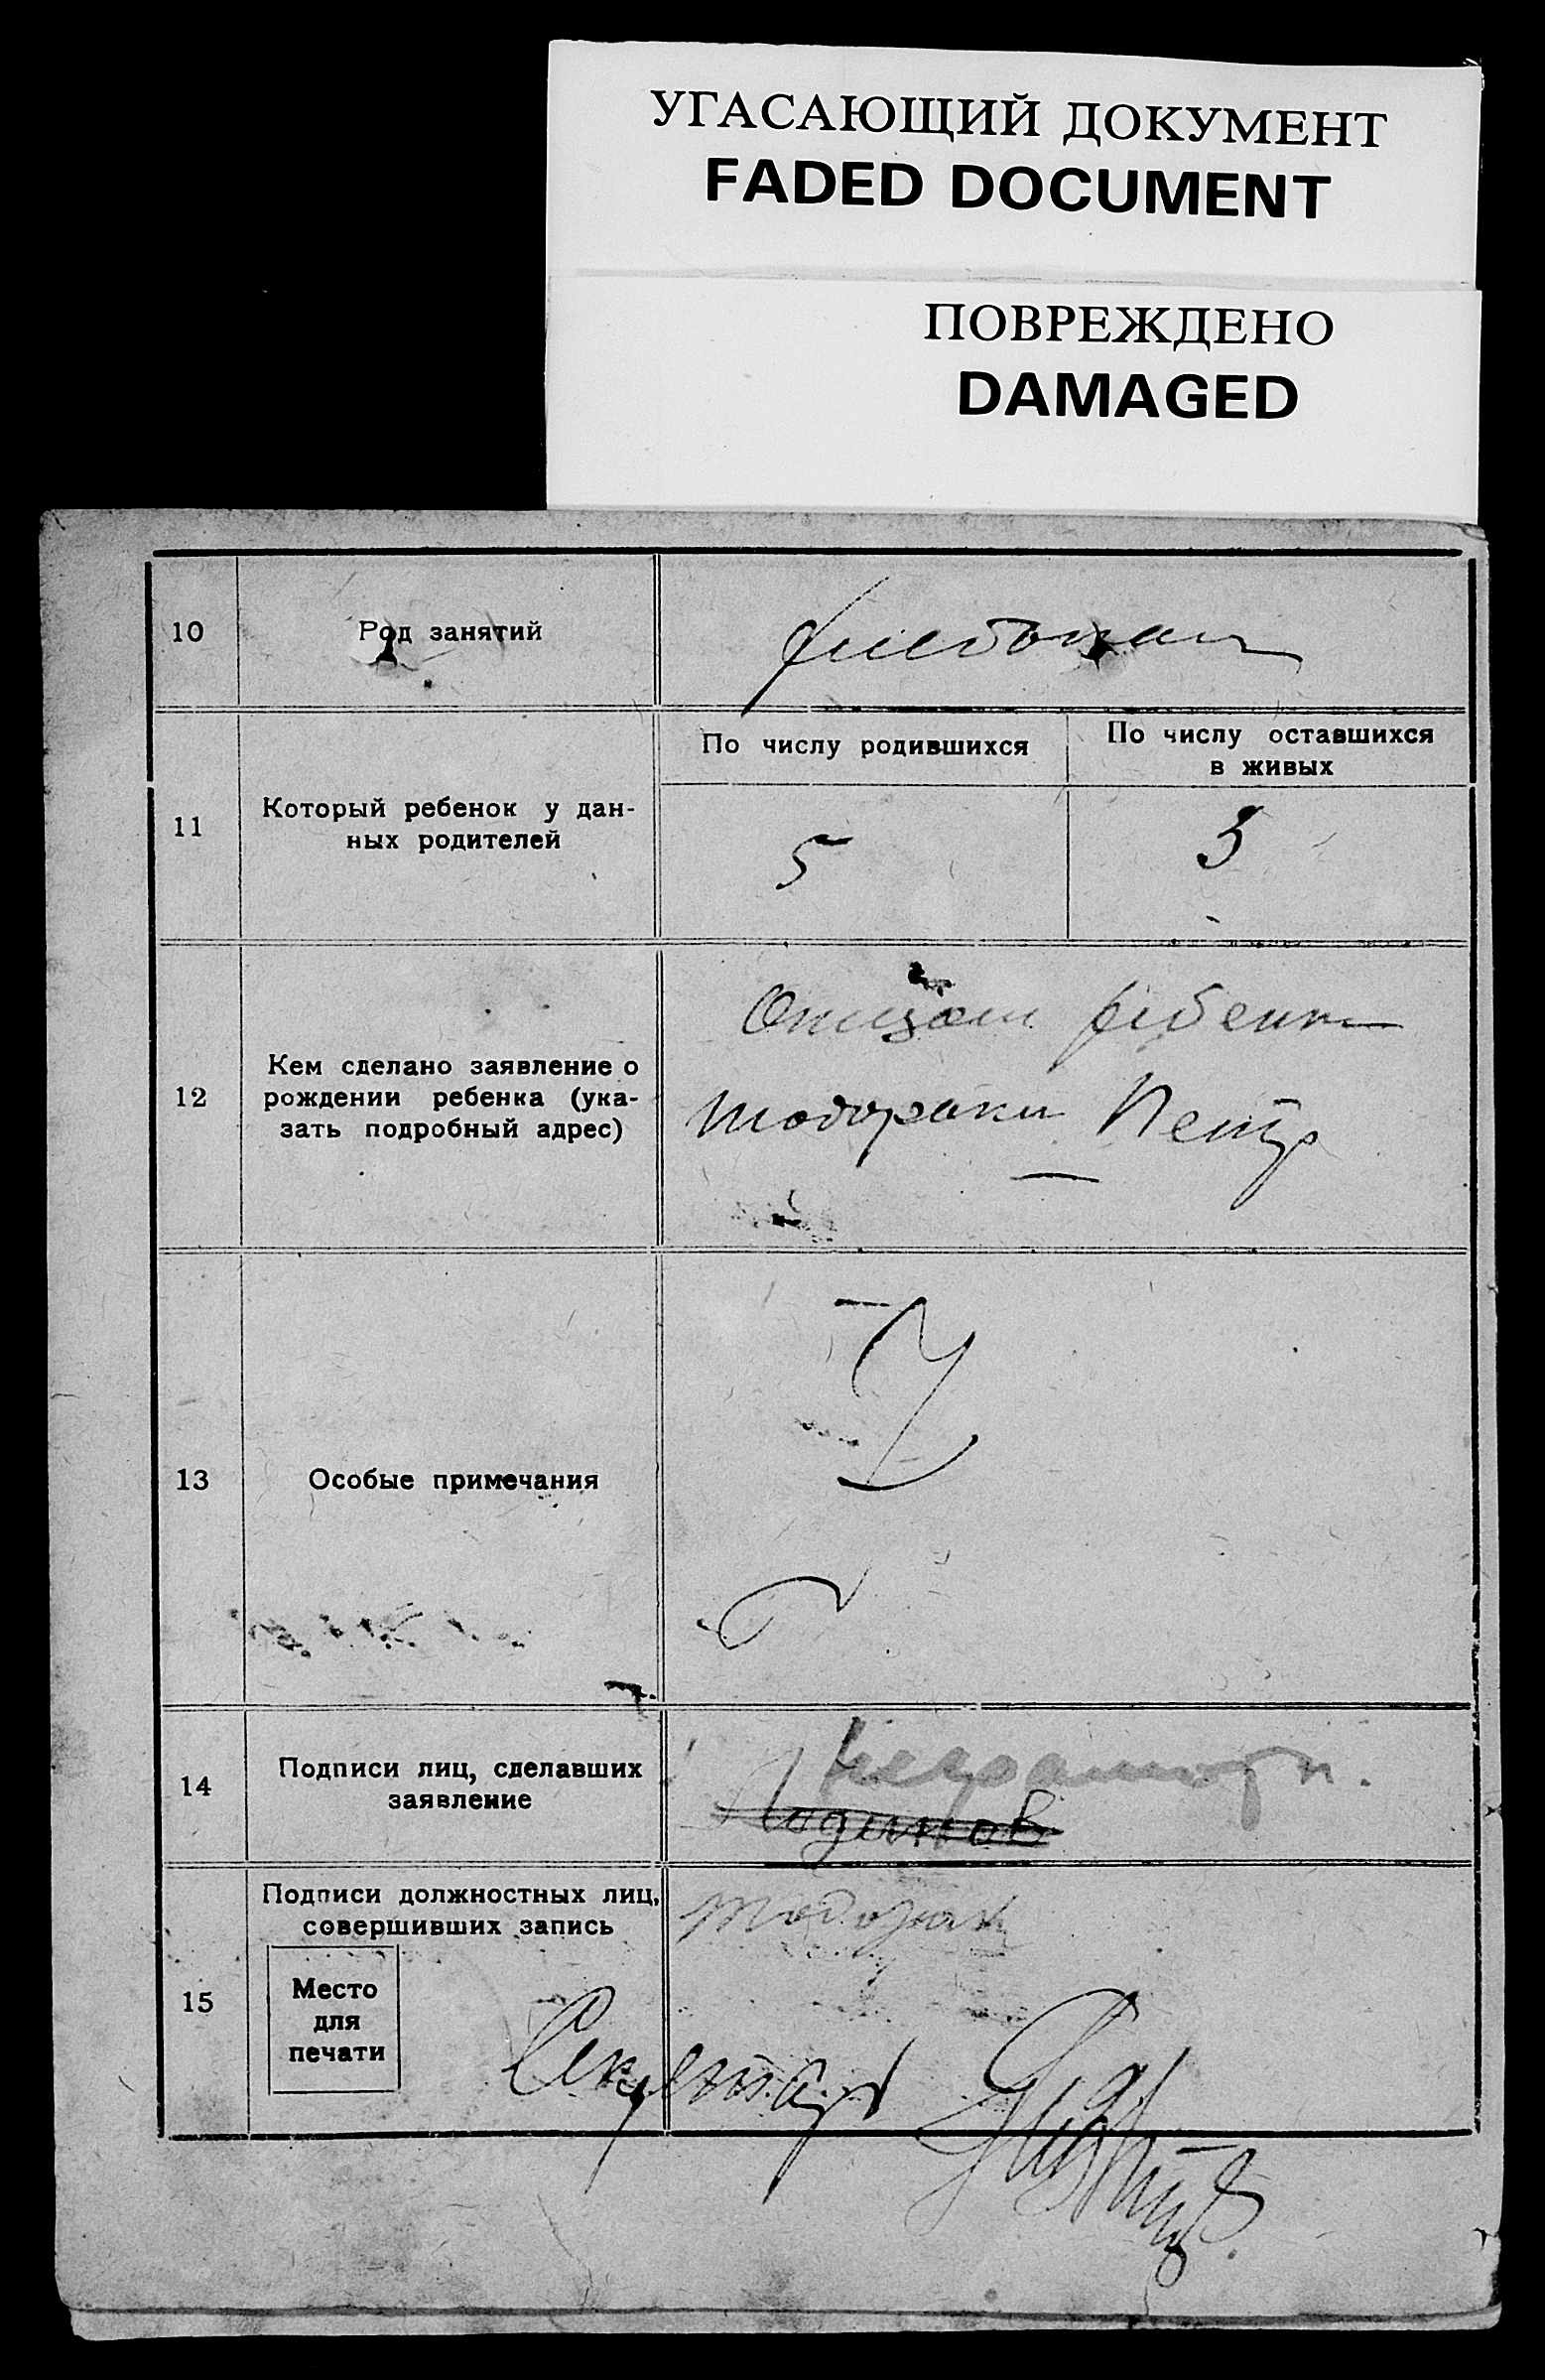 УГАСАЮЩИЙ ДОКУМЕНТ
FADED DOCUMENT
ПОВРЕЖДЕНО
DAMAGED
10
Род занятий
хлебопаш
11
Который ребенок у дан-
ных родителей
По числу родившихся
По числу оставшихся
в живых
5
3
12
Кем сделано заявление о
рождении ребенка (ука-
зать подробный адрес)
Отцом ребенка
Тодораки Петр
13
Особые примечания
14
Подписи лиц, сделавших
заявление
неграмотн.
15
Подписи должностных лиц,
совершивших запись
Тодораки
Место
для
печати
Секретарь